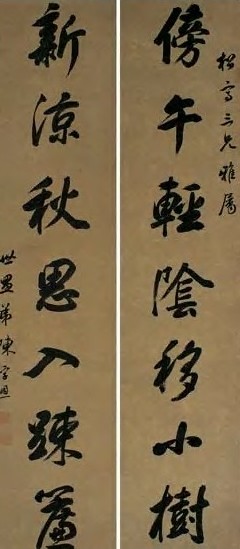 松三兄雅屬
傍午輕陰移小樹
新涼秋思入踈簾
世愚弟陳孚恩